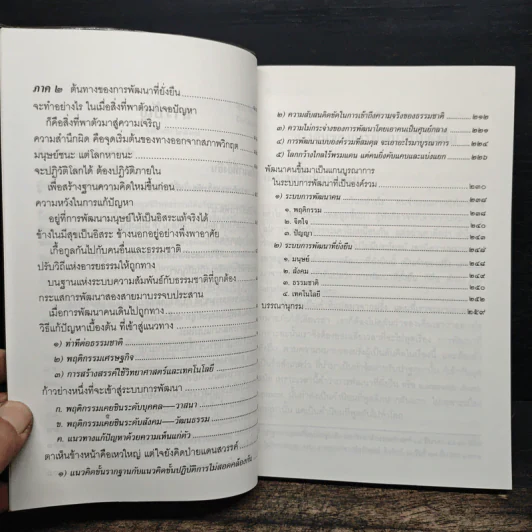 ภาค ๒ ต้นทางของการพัฒนาที่ยั่งยืน
จะทำอย่างไร ในเมื่อสิ่งที่พาตัวมาเจอปัญหา
ก็คือสิ่งที่พาตัวมาสู่ความเจริญ
ความสำนึกผิด คือจุดเริ่มต้นของทางออกจากสภาพวิกฤต
มนุษย์ชนะ แต่โลกหายนะ
จะปฏิวัติโลกได้ ต้องปฏิวัติภายใน
เพื่อสร้างฐานความคิดใหม่ขึ้นก่อน
ความหวังในการแก้ปัญหา
อยู่ที่การพัฒนามนุษย์ให้เป็นอิสระแท้จริงได้
ข้างในมีสุขเป็นอิสระ ข้างนอกอยู่อย่างพึ่งพาอาศัย
เกื้อกูลกันไปกับคนอื่นและธรรมชาติ
ปรับวิถีแห่งอารยธรรมให้ถูกทาง
บนฐานแห่งระบบความสัมพันธ์กับธรรมชาติที่ถูกต้อง
กระแสการพัฒนาสองสายมาบรรจบประสาน
เมื่อการพัฒนาคนเดินไปถูกทาง
วิธีแก้ปัญหาเบื้องต้น ที่เข้าสู่แนวทาง
๑) ท่าทีต่อธรรมชาติ
๒) พฤติกรรมเศรษฐกิจ
๓) การสร้างสรรค์ใช้วิทยาศาสตร์และเทคโนโลยี
ก้าวย่างหนึ่งที่จะเข้าสู่ระบบการพัฒนา
ก. พฤติกรรมเคยชินระดับบุคคล—วาสนา
ข. พฤติกรรมเคยชินระดับสังคม—วัฒนธรรม
ค. แนวทางแก้ปัญหาด้วยความเห็นแก่ตัว
ตาเห็นข้างหน้าคือเหวใหญ่ แต่ใจยังคิดป่ายแดนสวรรค์
๑) แนวคิดขั้นรากฐานกับแนวคิดขั้นปฏิบัติการไม่สอดคล้องกัน
๒) ความสับสนติดขัดในการเข้าถึงความจริงของธรรมชาติ ๒๑๒
๓) ความไม่กระจ่างของการพัฒนาโดยเอาคนเป็นศูนย์กลาง ๒๒๑
๔) การพัฒนาแบบองค์รวมที่สมดุล จะเอาอะไรมาบูรณาการ ๒๒๔
๕) โลกกว้างไกลไร้พรมแดน แต่คนยิ่งคับแคบและแบ่งแยก ๒๒๖
พัฒนาคนขึ้นมาเป็นแกนบูรณาการ
ในระบบการพัฒนาที่เป็นองค์รวม ๒๓๐
๑) ระบบการพัฒนาคน ๒๓๘
๑. พฤติกรรม ๒๓๘
๒. จิตใจ
๓. ปัญญา ๒๔๓
๒) ระบบการพัฒนาที่ยั่งยืน ๒๔๗
๑. มนุษย์ ๒๔๘
๒. สังคม ๒๔๙
๓. ธรรมชาติ ๒๕๐
๔. เทคโนโลยี ๒๕๒
บรรณานุกรม ๒๕๙